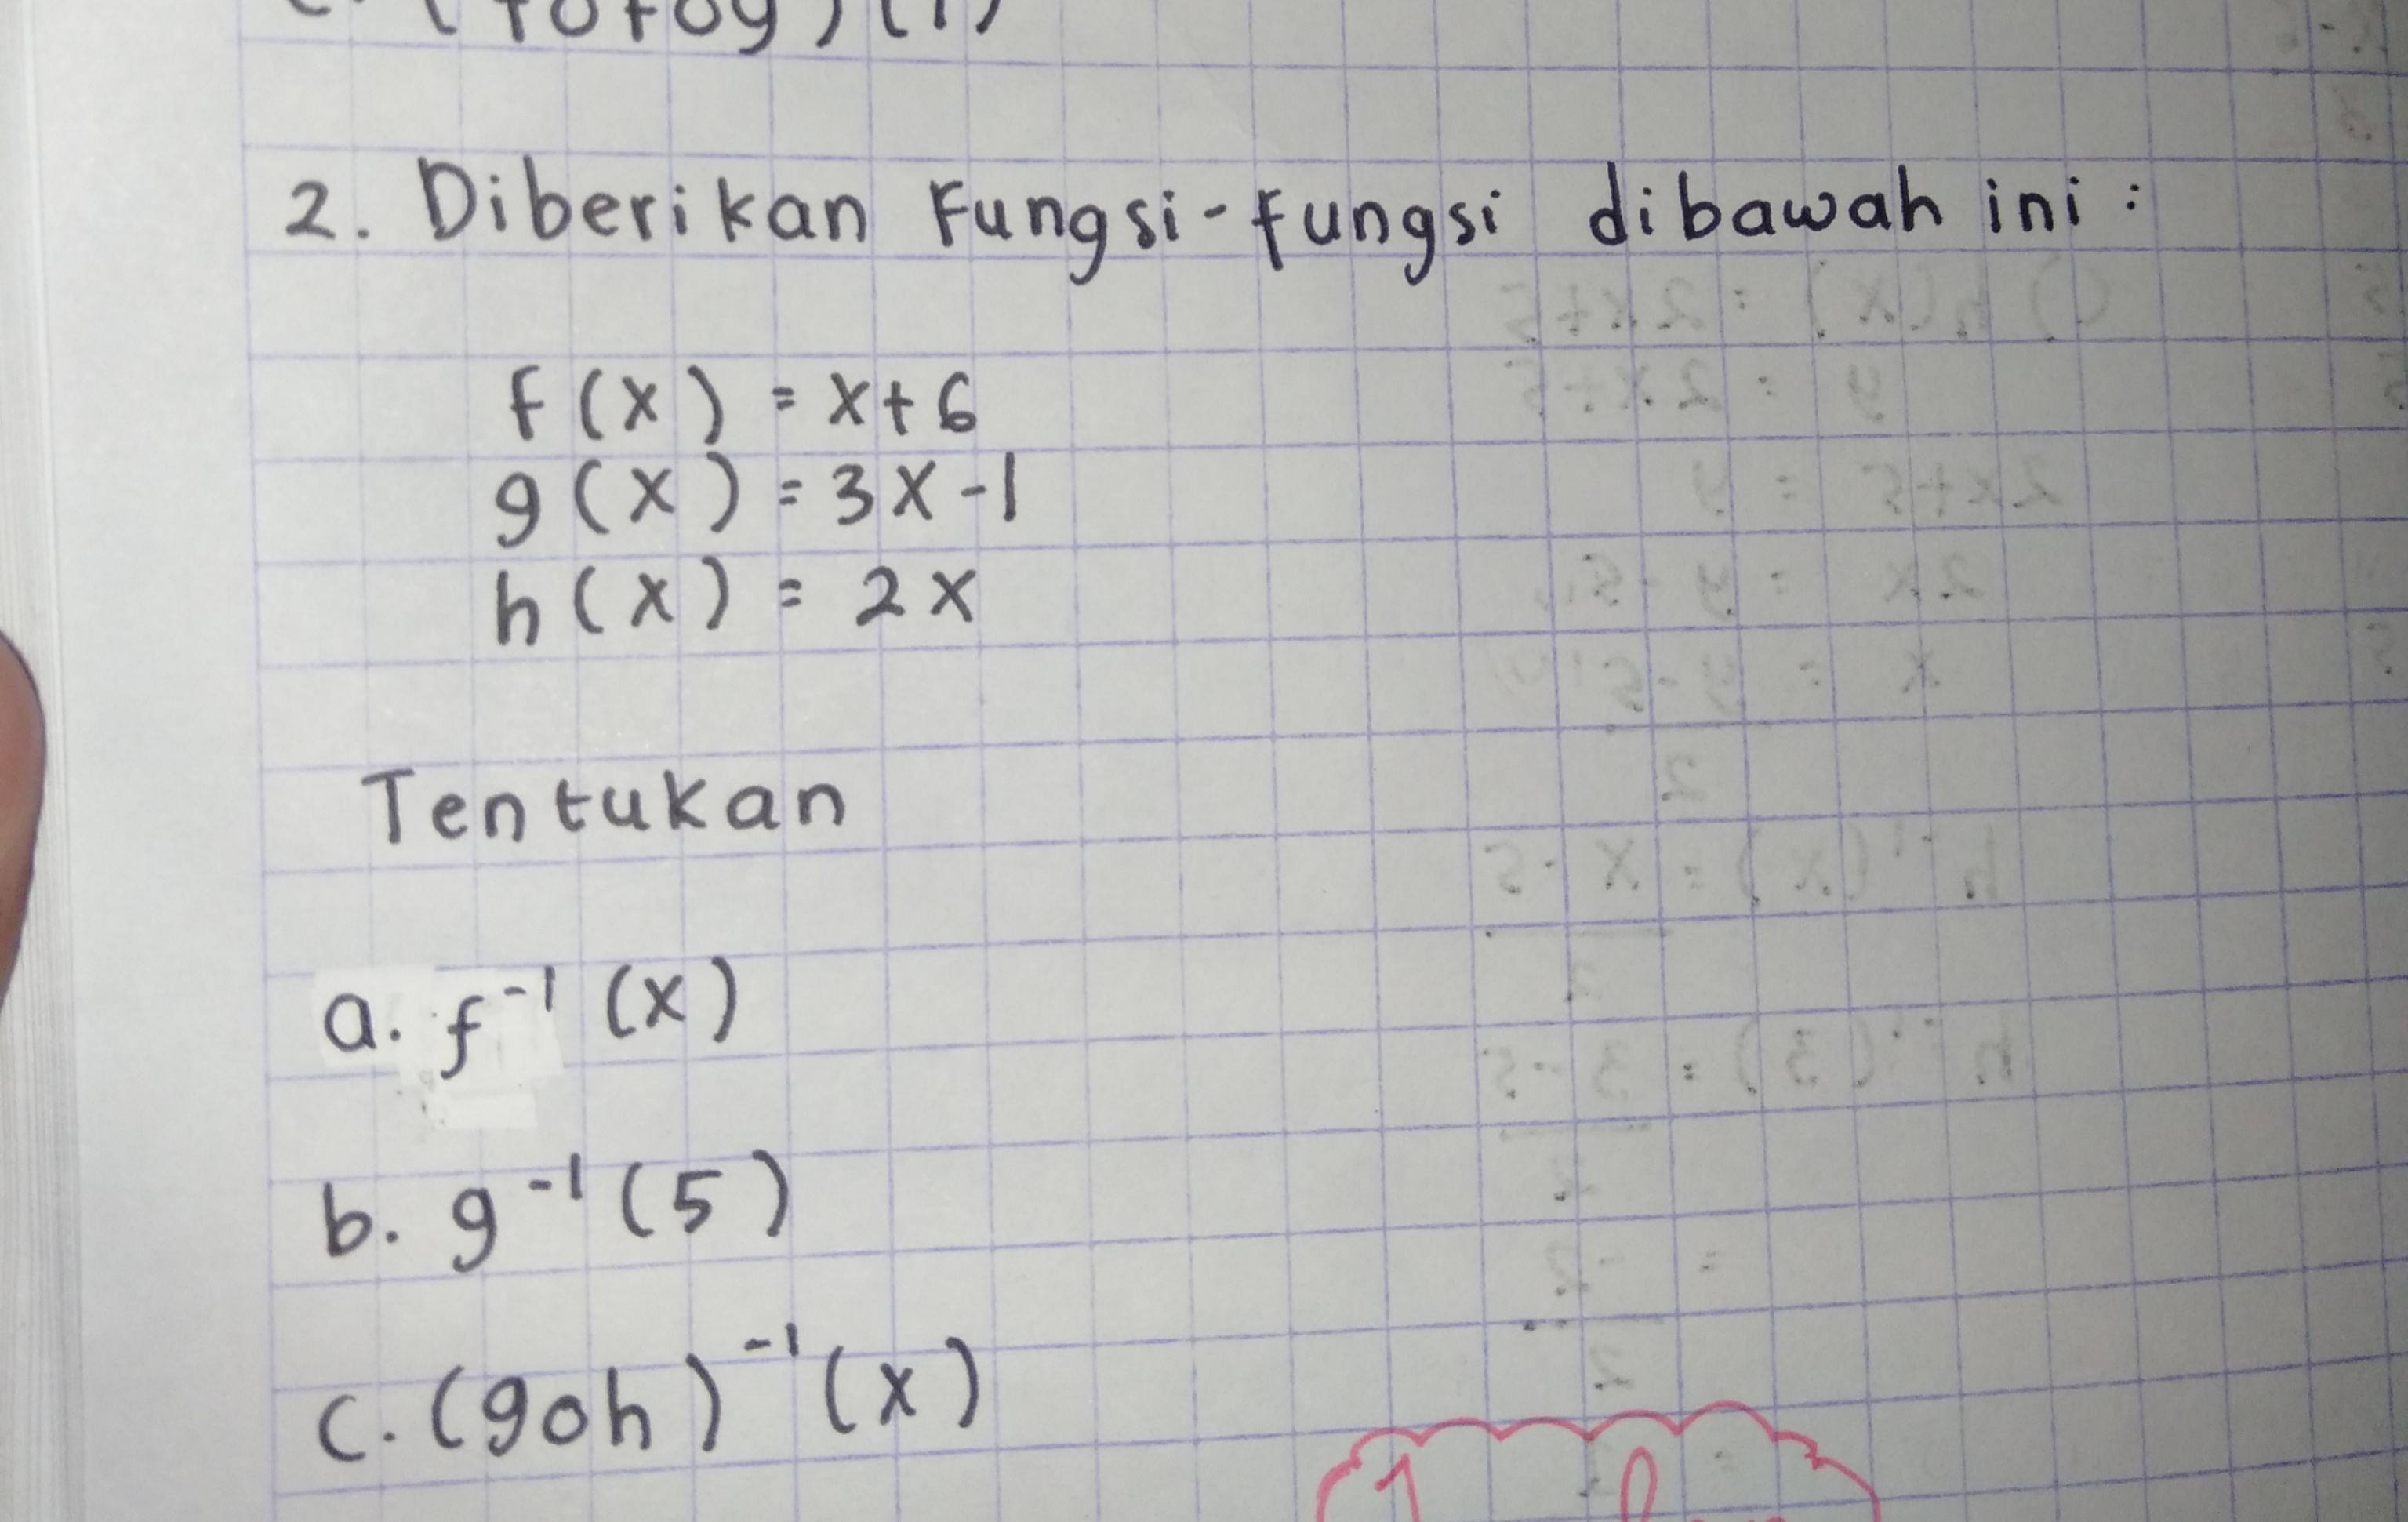 (fofog)(1)
2. Diberikan Fungsi-fungsi dibawah ini:
f(x) = x+6
g(x) = 3x-1
h(x) = 2x
Tentukan
a. f⁻¹(x)
b. g⁻¹(5)
c. (goh)⁻¹(x)